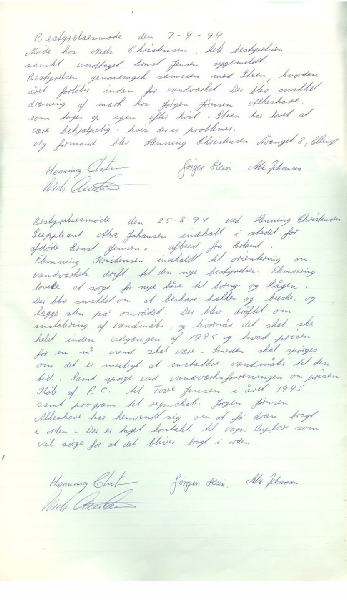 Bestyrelsesmøde den 7-4-94
Møde hos Niels Christensen, hele bestyrelsen
samt Ernst Jensen
Bestyrelsen gennemgik sammen med Steen, hvordan
året forløber inden for vandværket. Der blev snakket
dræning af mark hos Jørgen Jensen
som tages op igen efter høst. Steen har lovet at
være behjælpelig. hvis der er problemer.
Ny formand blev Henning Christensen Tvenget 8, Ellinge
Henning Christensen Jørgen Stein Atle Johansen
Niels Christensen
Bestyrelsesmøde den 25-8-94 ved Henning Christensen
Suppleant Atle Johansen indkaldt i stedet for
Ernst Jensen. afbud fra
Flemming Kristensen indkaldt til orientering om
vandværkets drift til den nye bestyrelse. Flemming
lovede at sørge for nye låse til boring og lågen.
Der blev snakket om at beskære hække og buske, og
lægge sten på området. Der blev drøftet om
installering af vandmåler, og hvornår det skal ske
helst inden udgangen af 1995 og hvad prisen
for en m³ vand skal være. Gården skal spørges
om det er muligt at installere vandmåler til den
tid. Samt spørge ved vandværksforeningen om prisen
Køb af P.C. til Tove Jensen i året 1995
samt program til regnskab. Jørgen Jensen
har henvendt sig om at få døren bragt
i orden. Der er taget kontakt til som
vil sørge for at det bliver bragt i orden.
Henning Christensen Jørgen Stein Atle Johansen
Niels Christensen